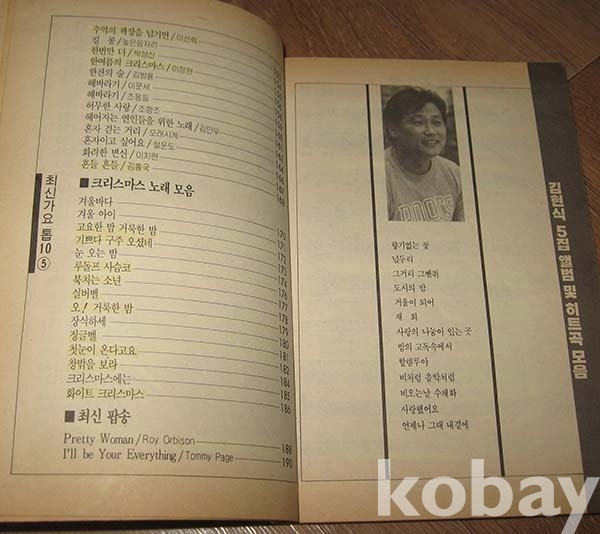 추억의 책장을 넘기면/이선희
킹 콩/높은음자리
한번만 더/박성신
한여름의 크리스마스/이장현
한잔의 술/김범룡
해바라기/이문세
해바라기/조용필
허무한 사랑/조항조
헤어지는 연인들을 위한 노래/김민우
혼자 걷는 거리/모래시계
혼자이고 싶어요/설운도
화려한 변신/이지현
흔들 흔들/김흥국
166
167
168
최신가요 톱10 ⑤
■크리스마스 노래 모음
겨울바다
겨울 아이 170
고요한 밤 거룩한 밤 171
기쁘다 구주 오셨네 172
눈 오는 밤 173
루돌프 사슴코 174
북치는 소년 175
실버벨 176
오! 거룩한 밤 177
장식하세 178
징글벨 179
첫눈이 온다고요 180
창밖을 보라 181
크리스마스에는 182
화이트 크리스마스 184
185
186
■최신 팝송
Pretty Woman/Roy Orbison 188
I'll be Your Everything/Tommy Page 190
향기없는 꽃
넋두리
그거리 그벤취
도시의 밤
겨울이 되어
재 회
사랑의 나눔이 있는 곳
밤의 고독속에서
할렐루야
비처럼 음악처럼
비오는날 수채화
사랑했어요
언제나 그대 내곁에
김현식 5집 앨범 및 히트곡 모음
kobay